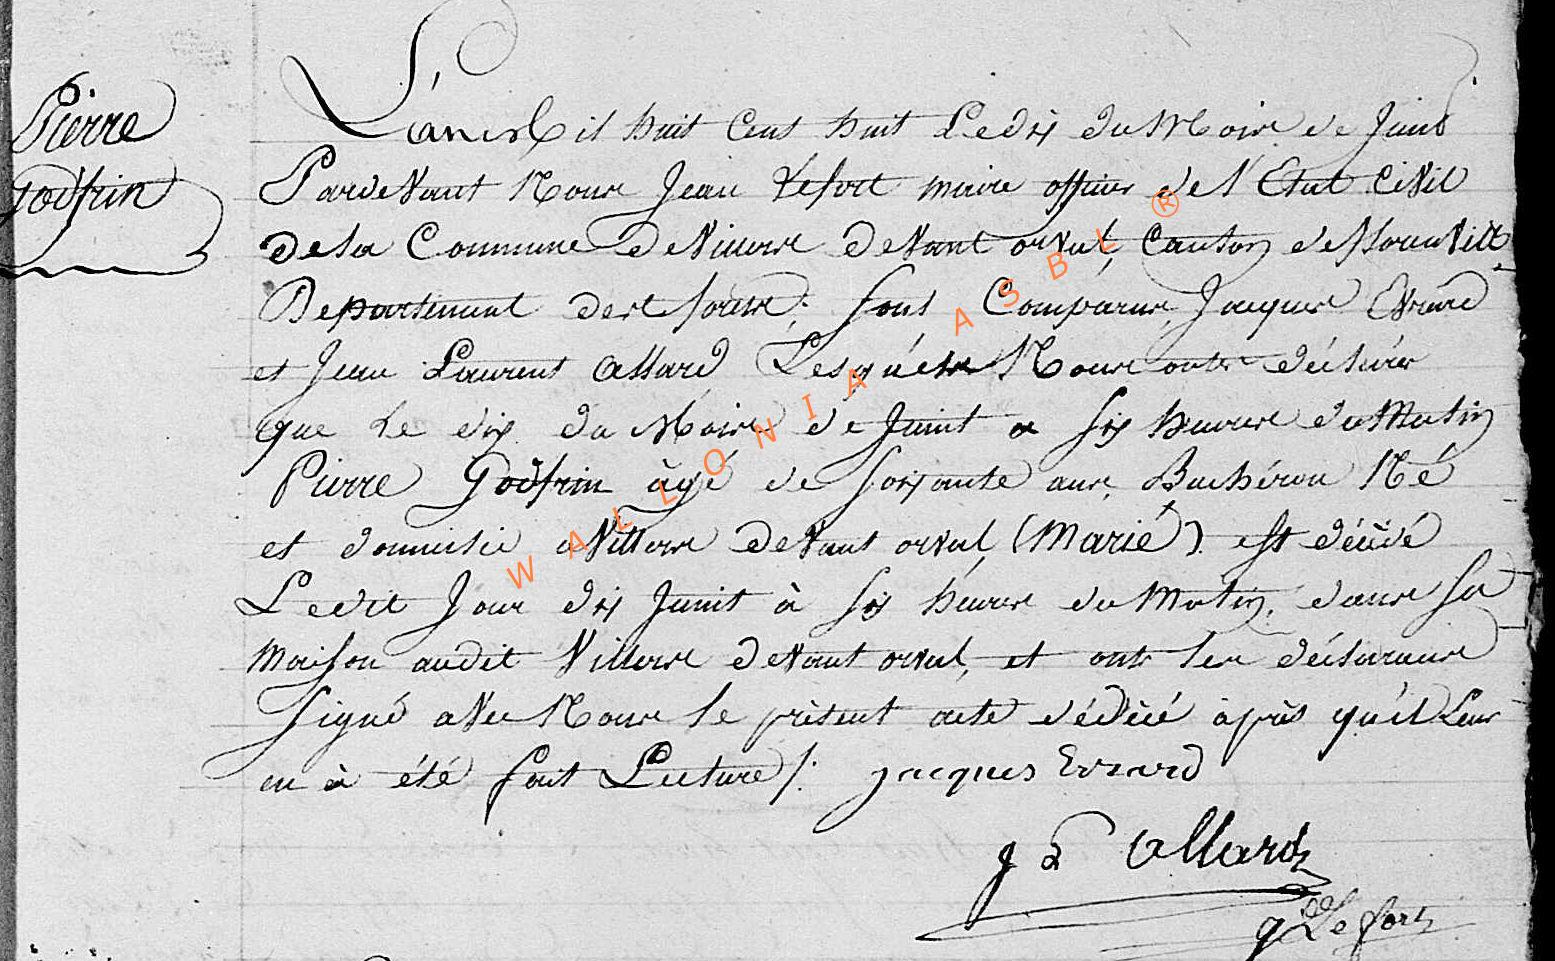 Pierre
godfrin
L'an Mil huit Cent huit Ledix du Mois de Juint
Pardevant Nous Jean Lefort maire officier de l'Etat Civil
dela Commune deVillers devant orval, Canton deflorenville
Departement des forets; sont Comparus, Jacques Evrard
et Jean Laurent allard Lesquéls Nous onts déclarés
que Le dix du Mois de Juint a six heures du Matin
Pierre Godfrin àgé de soixante ans, Buchéron Né
et domicilié aVillers devant orval, (Marié) est décédé
Ledit Jour dix Juint à six heures du Matin, dans sa
maison audit Villers devant orval, et onts les déclarans
signé avec Nous le présent acte rédigé après qu'il Leur
en à été fait Lecture/.
jacques Evrard
J L allard
J Lefort
WALLONIA ASBL ®